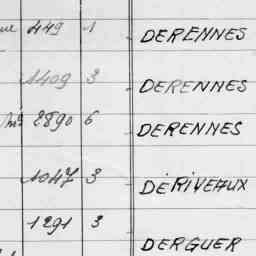 449 1 DERENNES
1409 3 DERENNES
2890 6 DERENNES
1047 3 DÉRIVEAUX
1291 3
DERGUER